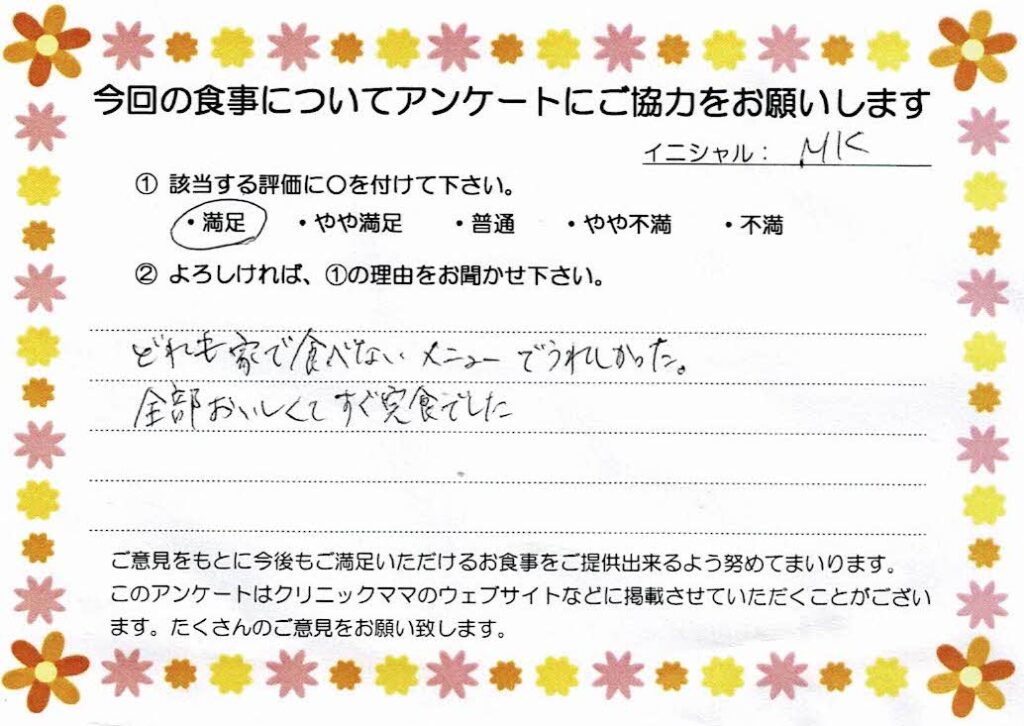 今回の食事についてアンケートにご協力をお願いします
イニシャル： MK
① 該当する評価に〇を付けて下さい。
・満足 ・やや満足 ・普通 ・やや不満 ・不満
② よろしければ、①の理由をお聞かせ下さい。
どれも家で食べないメニューでうれしかった。
全部おいしくてすぐ完食でした
ご意見をもとに今後もご満足いただけるお食事をご提供出来るよう努めてまいります。
このアンケートはクリニックママのウェブサイトなどに掲載させていただくことがござい
ます。たくさんのご意見をお願い致します。